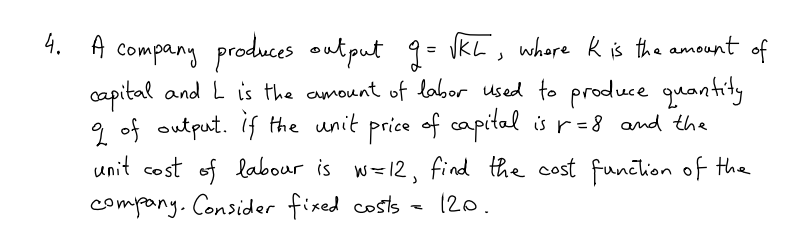 4. A company produces output q = √KL, where K is the amount of
capital and L is the amount of labor used to produce quantity
q of output. if the unit price of capital is r = 8 and the
unit cost of labour is w=12, find the cost function of the
company. Consider fixed costs = 120.